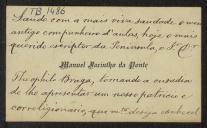 TB 1486
Saudo com a mais viva saudade o meu
antigo companheiro d'aulas, hoje o mais
querido escriptor da Peninsula, o Sr. Dr.
Manuel Jacintho da Ponte
Theophilo Braga, tomando a ousadia
de lhe apresentar um nosso patricio e
correligionário, que m.to deseja conhecel